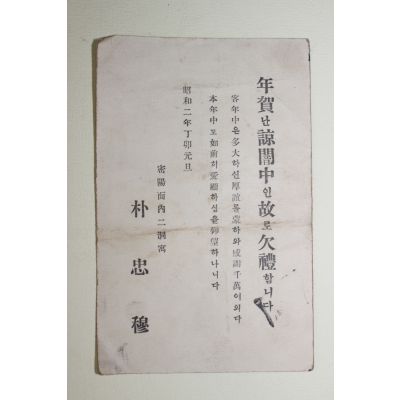 年賀난諒闇中인故로欠禮합니다
客年中은多大하신厚誼를蒙하와感謝千萬이외다
本年中도如前히愛顧하심을仰望하나니다
昭和二年丁卯元旦
密陽面內二洞寓
朴忠穆